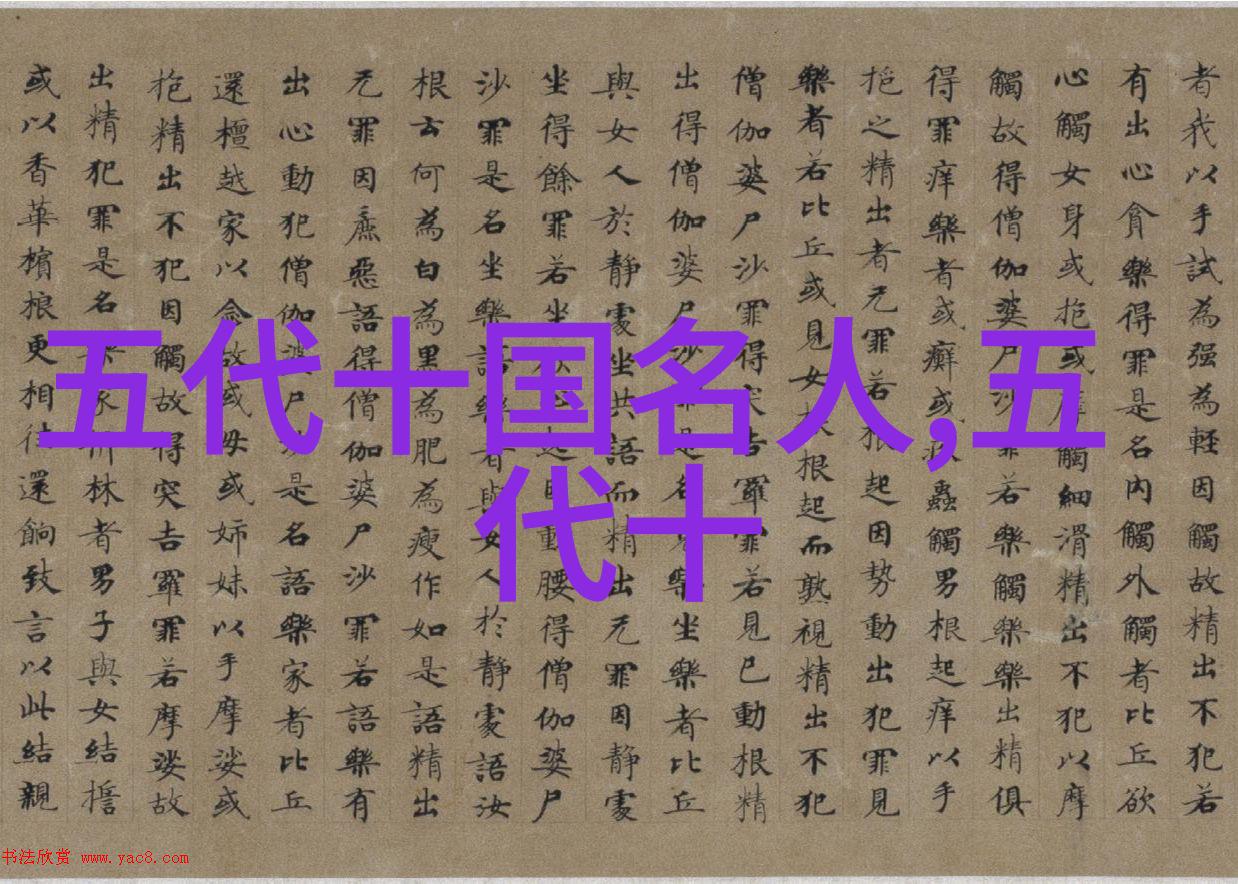 五代十国名人,五
代十
者我以手試為强為輕因觸故精出不犯若
有出心貪樂得罪是名内觸外觸者比丘欲
心觸女身或抱或摩觸細滑精出不犯以摩
觸故得僧伽婆尸沙罪若樂觸樂樂出精俱
得罪痒樂者或癬或蟲觸男根起痒以手
抱之精出者无罪若根起因勢動出犯罪見
樂者若比丘或見女根起而熟視精出不犯
僧伽婆尸沙罪得突吉羅罪若見已動根精
出得僧伽婆尸沙罪是名見樂坐樂者比丘
與女人於静處坐共語而精出无罪因静處
坐得餘罪若坐起動腰得僧伽婆尸
沙罪是名坐樂語樂者與女人於静處語汝
根云何為白為黑為肥為瘦作如是語精出
无罪因麁惡語得僧伽婆尸沙罪若語樂有
出心動犯僧伽婆尸是名語樂家者比丘
還檀越家以念故或母或姉妹以手摩娑或
抱精出不犯因觸故得突吉羅罪若摩娑故
出精犯罪是名樂家林者男子與女結誓
或以香華檳榔更相往還餉致言以此結親
书法欣赏 www.yac8.com